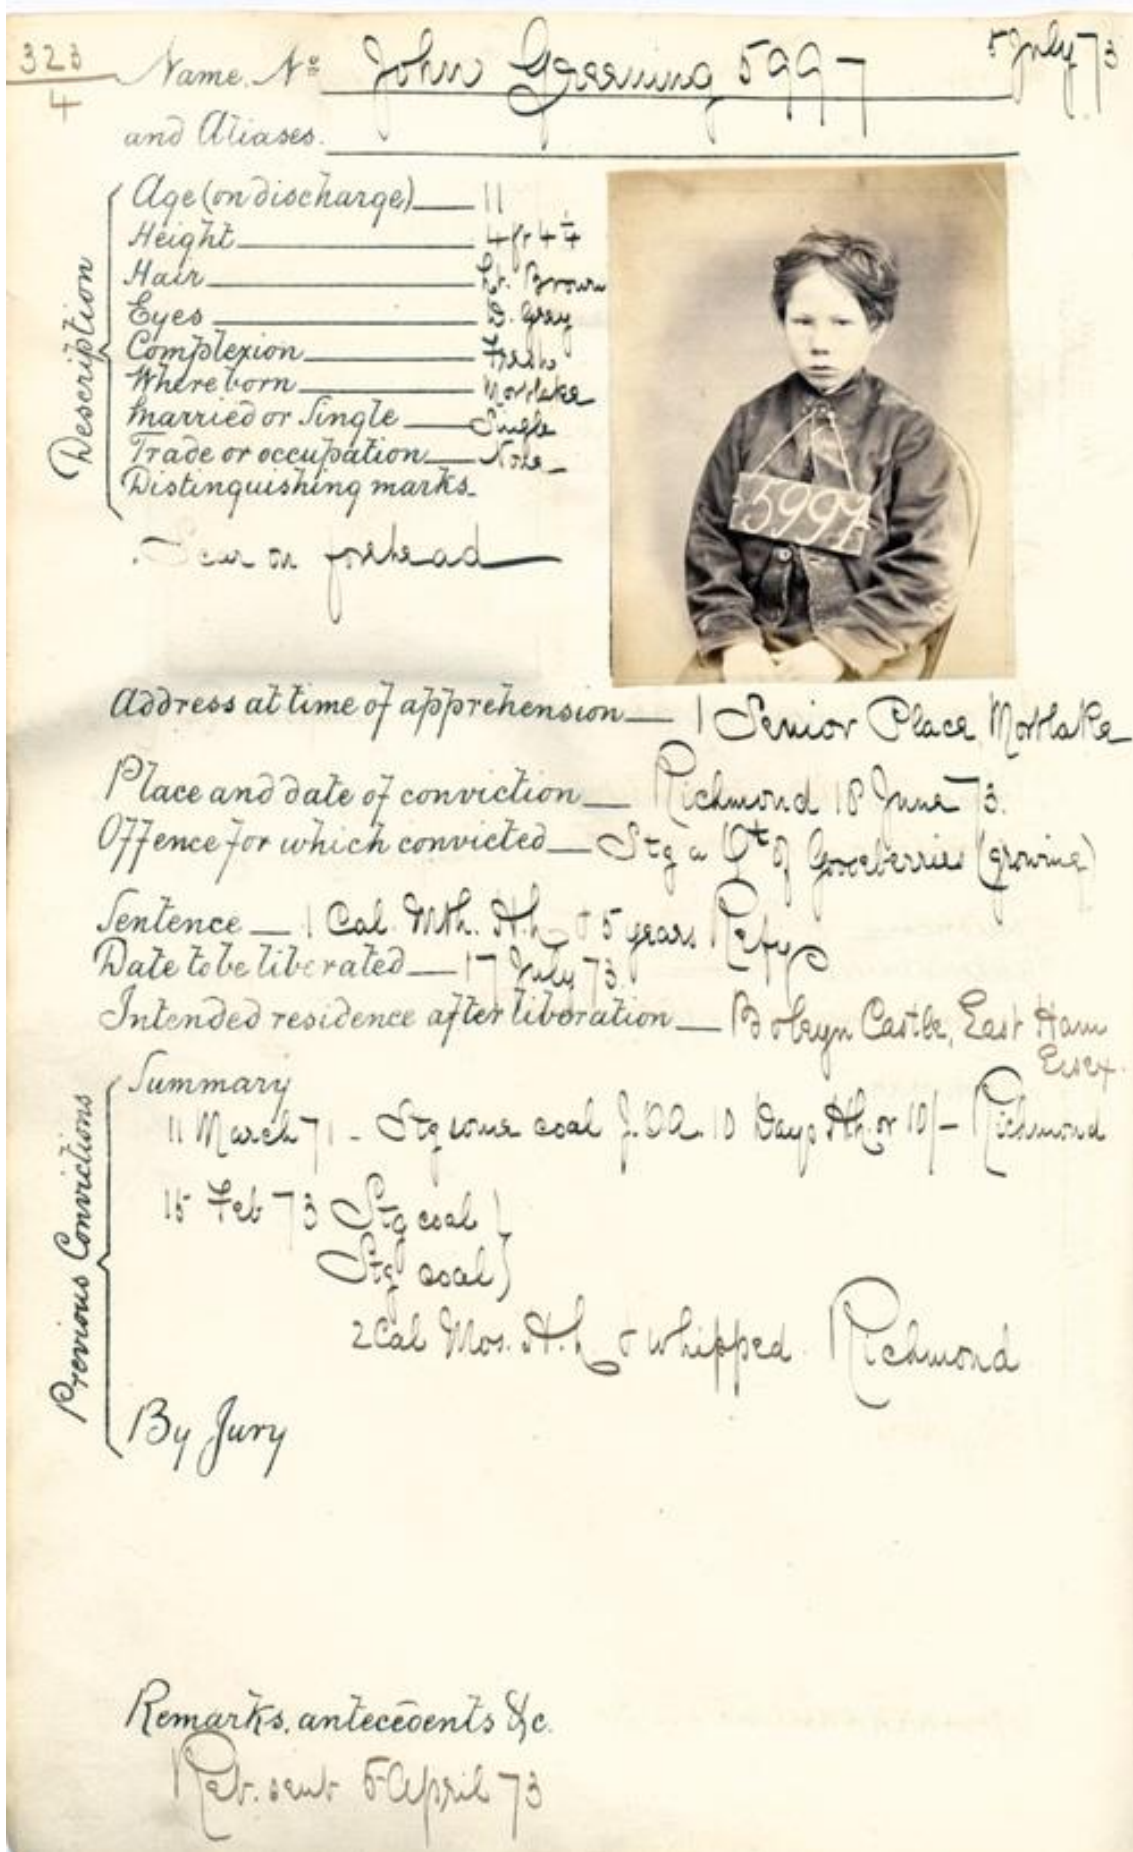 323
4
Name. No John Greening 5997 5 July 73
and Aliases.
Description
Age (on discharge) 11
Height 4 ft 4 1/4
Hair Lt. Brown
Eyes D. Grey
Complexion Fresh
Where born Mortlake
Married or Single Single
Trade or occupation None
Distinguishing marks.
Scar on forehead
5997
Address at time of apprehension 1 Senior Place, Mortlake
Place and date of conviction Richmond 18 June 73.
Offence for which convicted Stg a Qt of Gooseberries (growing)
Sentence 1 Cal. Mth. H.h & 5 years Refy
Date to be liberated 17 July 73.
Intended residence after liberation Boleyn Castle, East Ham
Essex.
Previous Convictions
Summary
11 March 71 - Stg some coal J.O.A. 10 Days Hh. or 10/- Richmond
15 Feb 73 Stg coal }
Stg coal }
2 Cal Mos. H.h & whipped. Richmond
By Jury
Remarks, antecedents &c.
Ret. sent 5 April 73